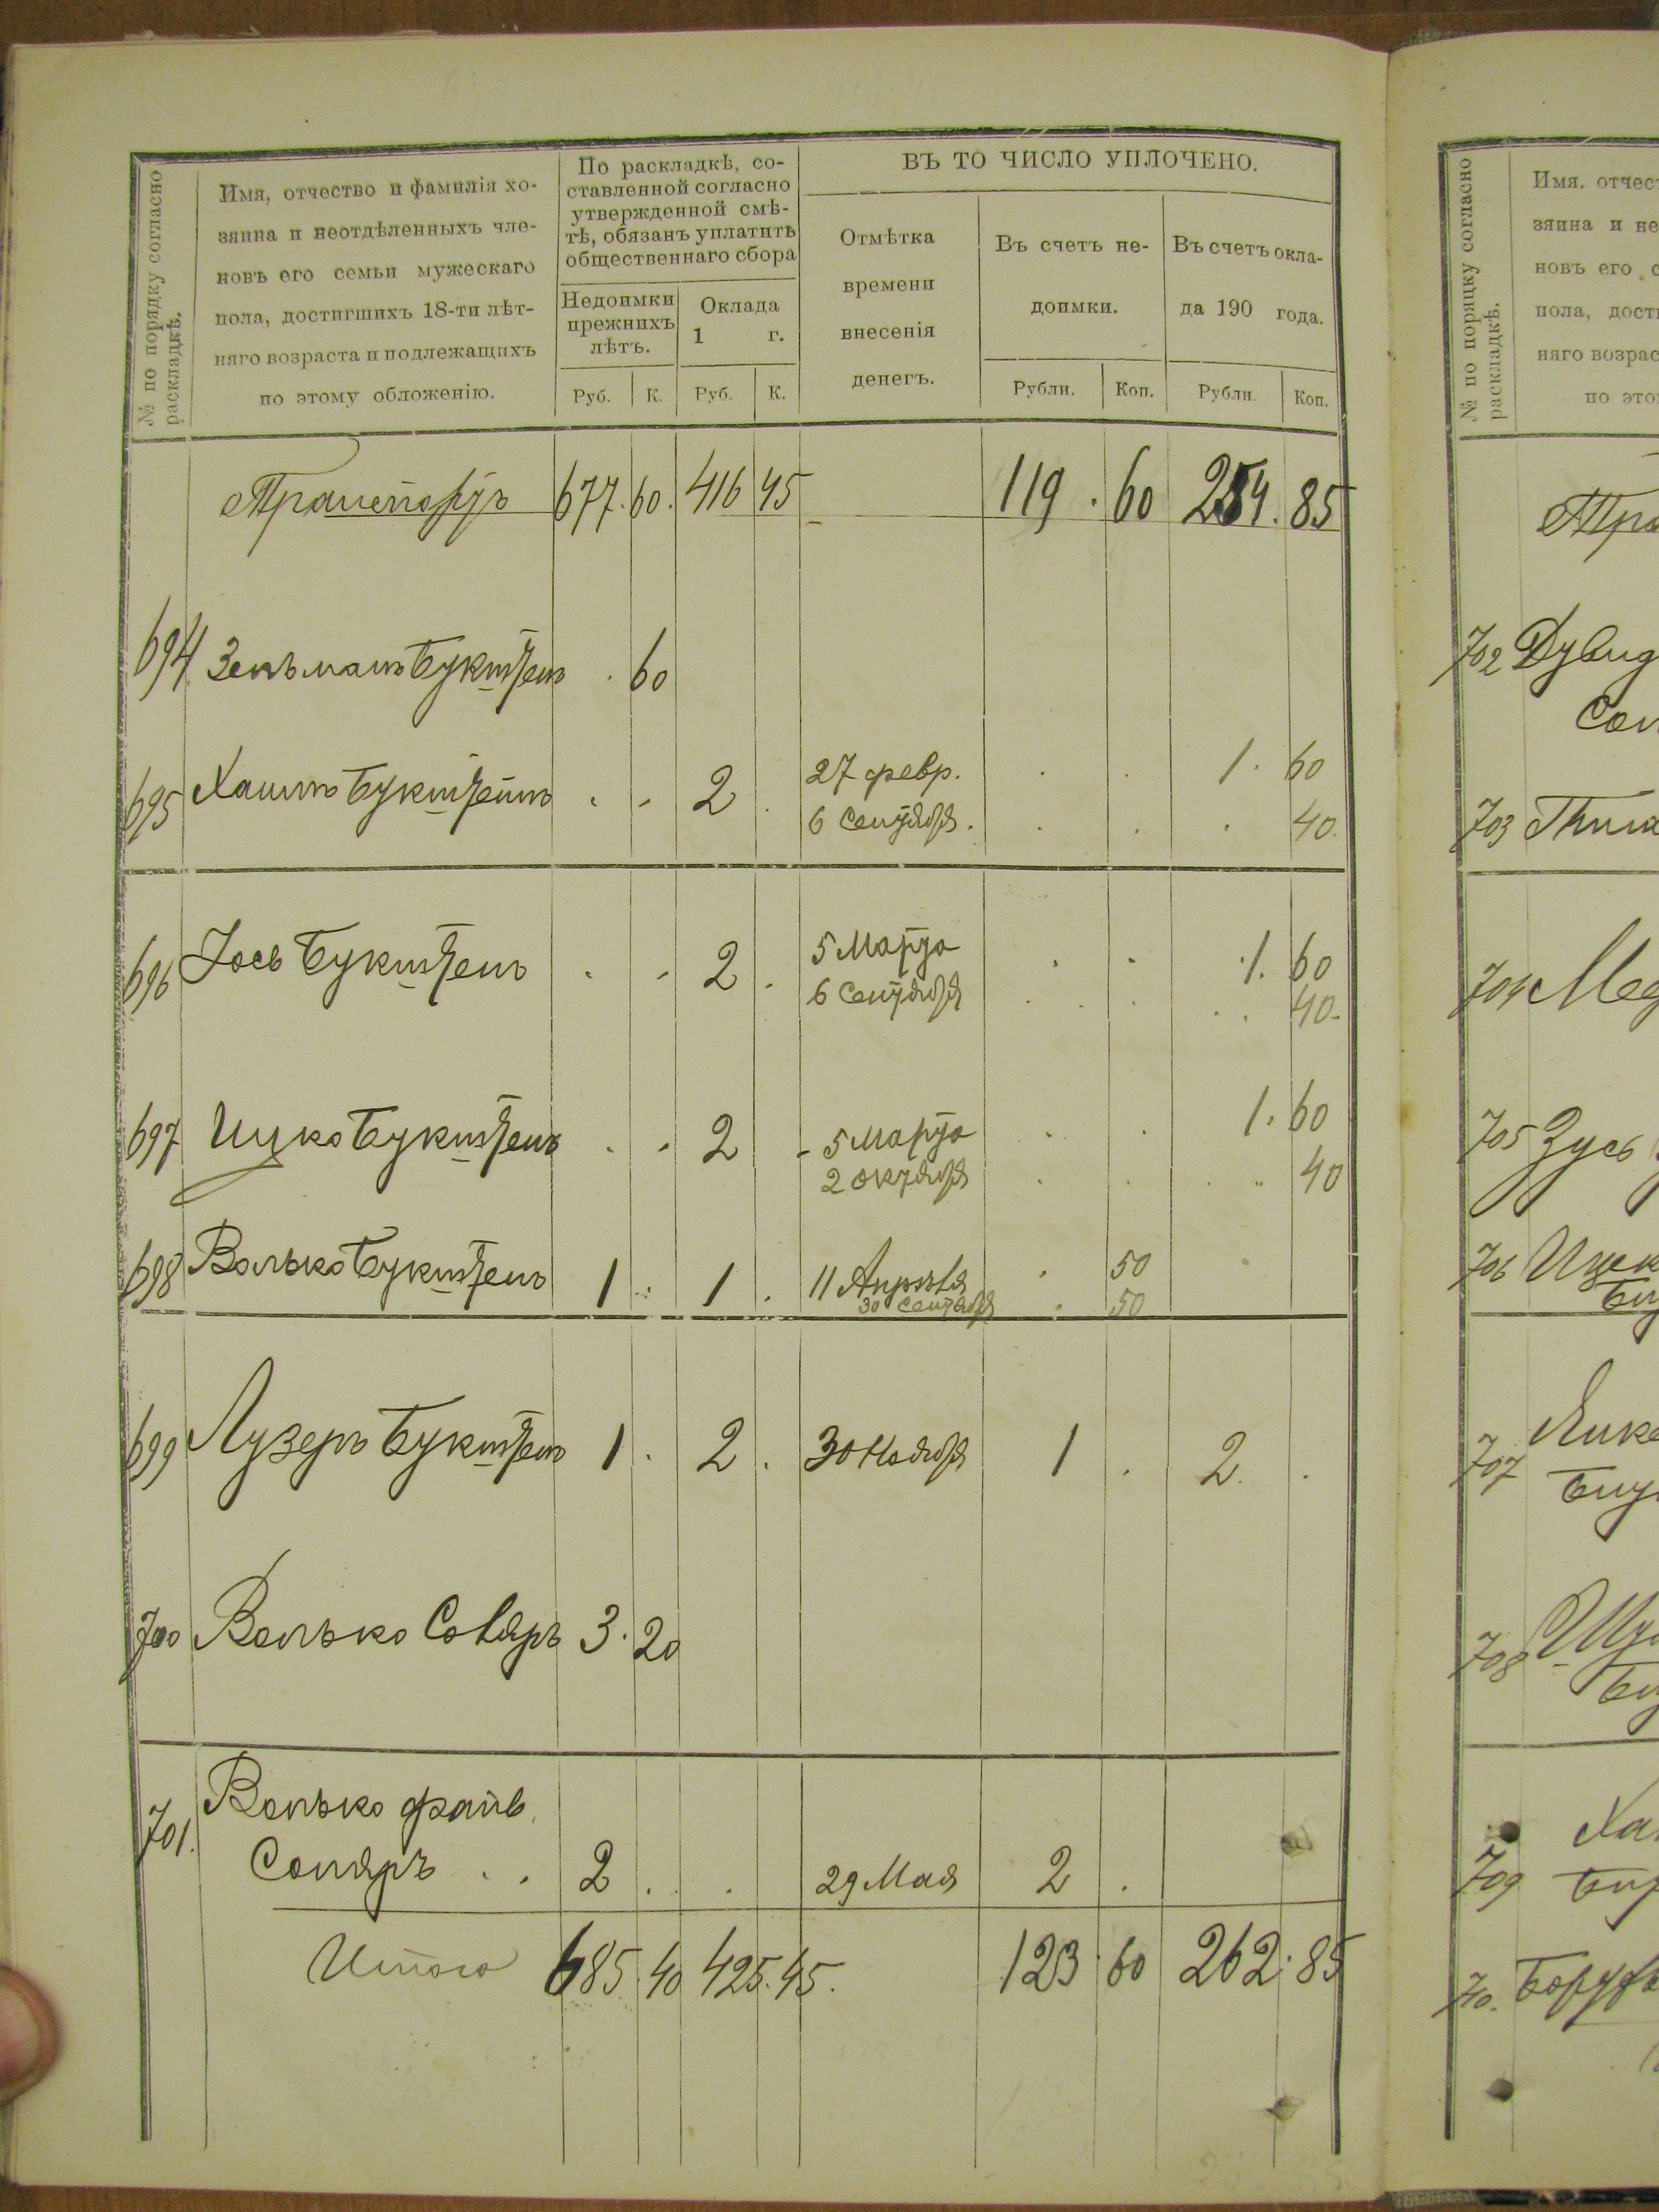 № по порядку согласно
раскладкѣ.
Имя, отчество и фамилія хо-
зяина и неотдѣленныхъ чле-
новъ его семьи мужескаго
пола, достигшихъ 18-ти лѣт-
няго возраста и подлежащихъ
по этому обложенію.
По раскладкѣ, со-
ставленной согласно
утвержденной смѣ-
тѣ, обязанъ уплатить
общественнаго сбора
Недоимки
прежнихъ
лѣтъ.
Оклада
1 г.
Руб. К. Руб. К.
ВЪ ТО ЧИСЛО УПЛОЧЕНО.
Отмѣтка
времени
внесенія
денегъ.
Въ счетъ не-
доимки.
Рубли. Коп.
Въ счетъ окла-
да 190 года.
Рубли. Коп.
Транспортъ 677. 60. 416 45 119. 60 254. 85
694 Зельманъ Букштенъ . 60
695 Хаимъ Букштейнъ . . 2 . 27 февр. . . 1. 60
6 Сентября. . . . 40.
696 Іось Букштенъ . . 2 . 5 Марта . . 1. 60
6 Сентября . . . . 40.
697 Ицко Букштенъ . . 2 - 5 Марта . . 1. 60
2 октября . . . 40
698 Волько Букштенъ 1 . 1 . 11 Апрѣля . 50
30 Сентября . 50
699 Лузеръ Букштенъ 1 . 2 . 30 Ноября 1 . 2. .
700 Волько Соляръ 3. 20
701. Волько файв.
Соляръ . . 2 . . 29 Мая 2 .
Итого 685. 40 425. 45. 123. 60 262. 85
№ по порядку согласно
раскладкѣ.
Имя. отчес
зяина и не
новъ его с
пола, дост
няго возрас
по это
702 Дувид
703
704 Мед
705 Зусь
706 Ицек
707
708
709 Ха
Борух